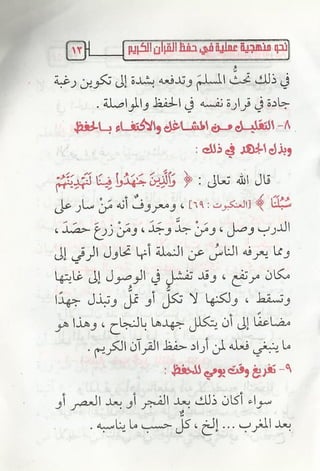 نحو منهجية عملية في حفظ القرآن الكريم
١٢
في ذلك تحثُّ المسلمَ وتدفعه بشدة إلى تكوين رغبة
جادة في قرارة نفسه في الحفظ والمواصلة .
٨- التقليل من المشاغل والاكتفاء بالحفظ
وبذل الجهد في ذلك :
قال الله تعالى : ﴿ وَالَّذِينَ جَاهَدُوا فِينَا لَنَهْدِيَنَّهُمْ
سُبُلَنَا ﴾ [العنكبوت : ٦٩] ، ومعروفٌ أنه مَنْ سار على
الدرب وصل ، ومَنْ جدَّ وجَدَ ، ومَنْ زرعَ حصدَ ،
ومما يعرفه الناسُ عن النملة أنها تحاول الرقي إلى
مكان مرتفع ، وقد تفشل في الوصول إلى غايتها
وتسقط ، ولكنها لا تكلُّ أو تملُّ وتبذل جهدًا
مضاعفًا إلى أن يتكلل جهدها بالنجاح ، وهذا هو
ما ينبغي فعله لمن أراد حفظ القرآن الكريم .
٩- تفريغ وقت يومي للحفظ :
سواء أكان ذلك بعد الفجر أو بعد العصر أو
بعد المغرب ... إلخ ، كلٌّ حسب ما يناسبه .